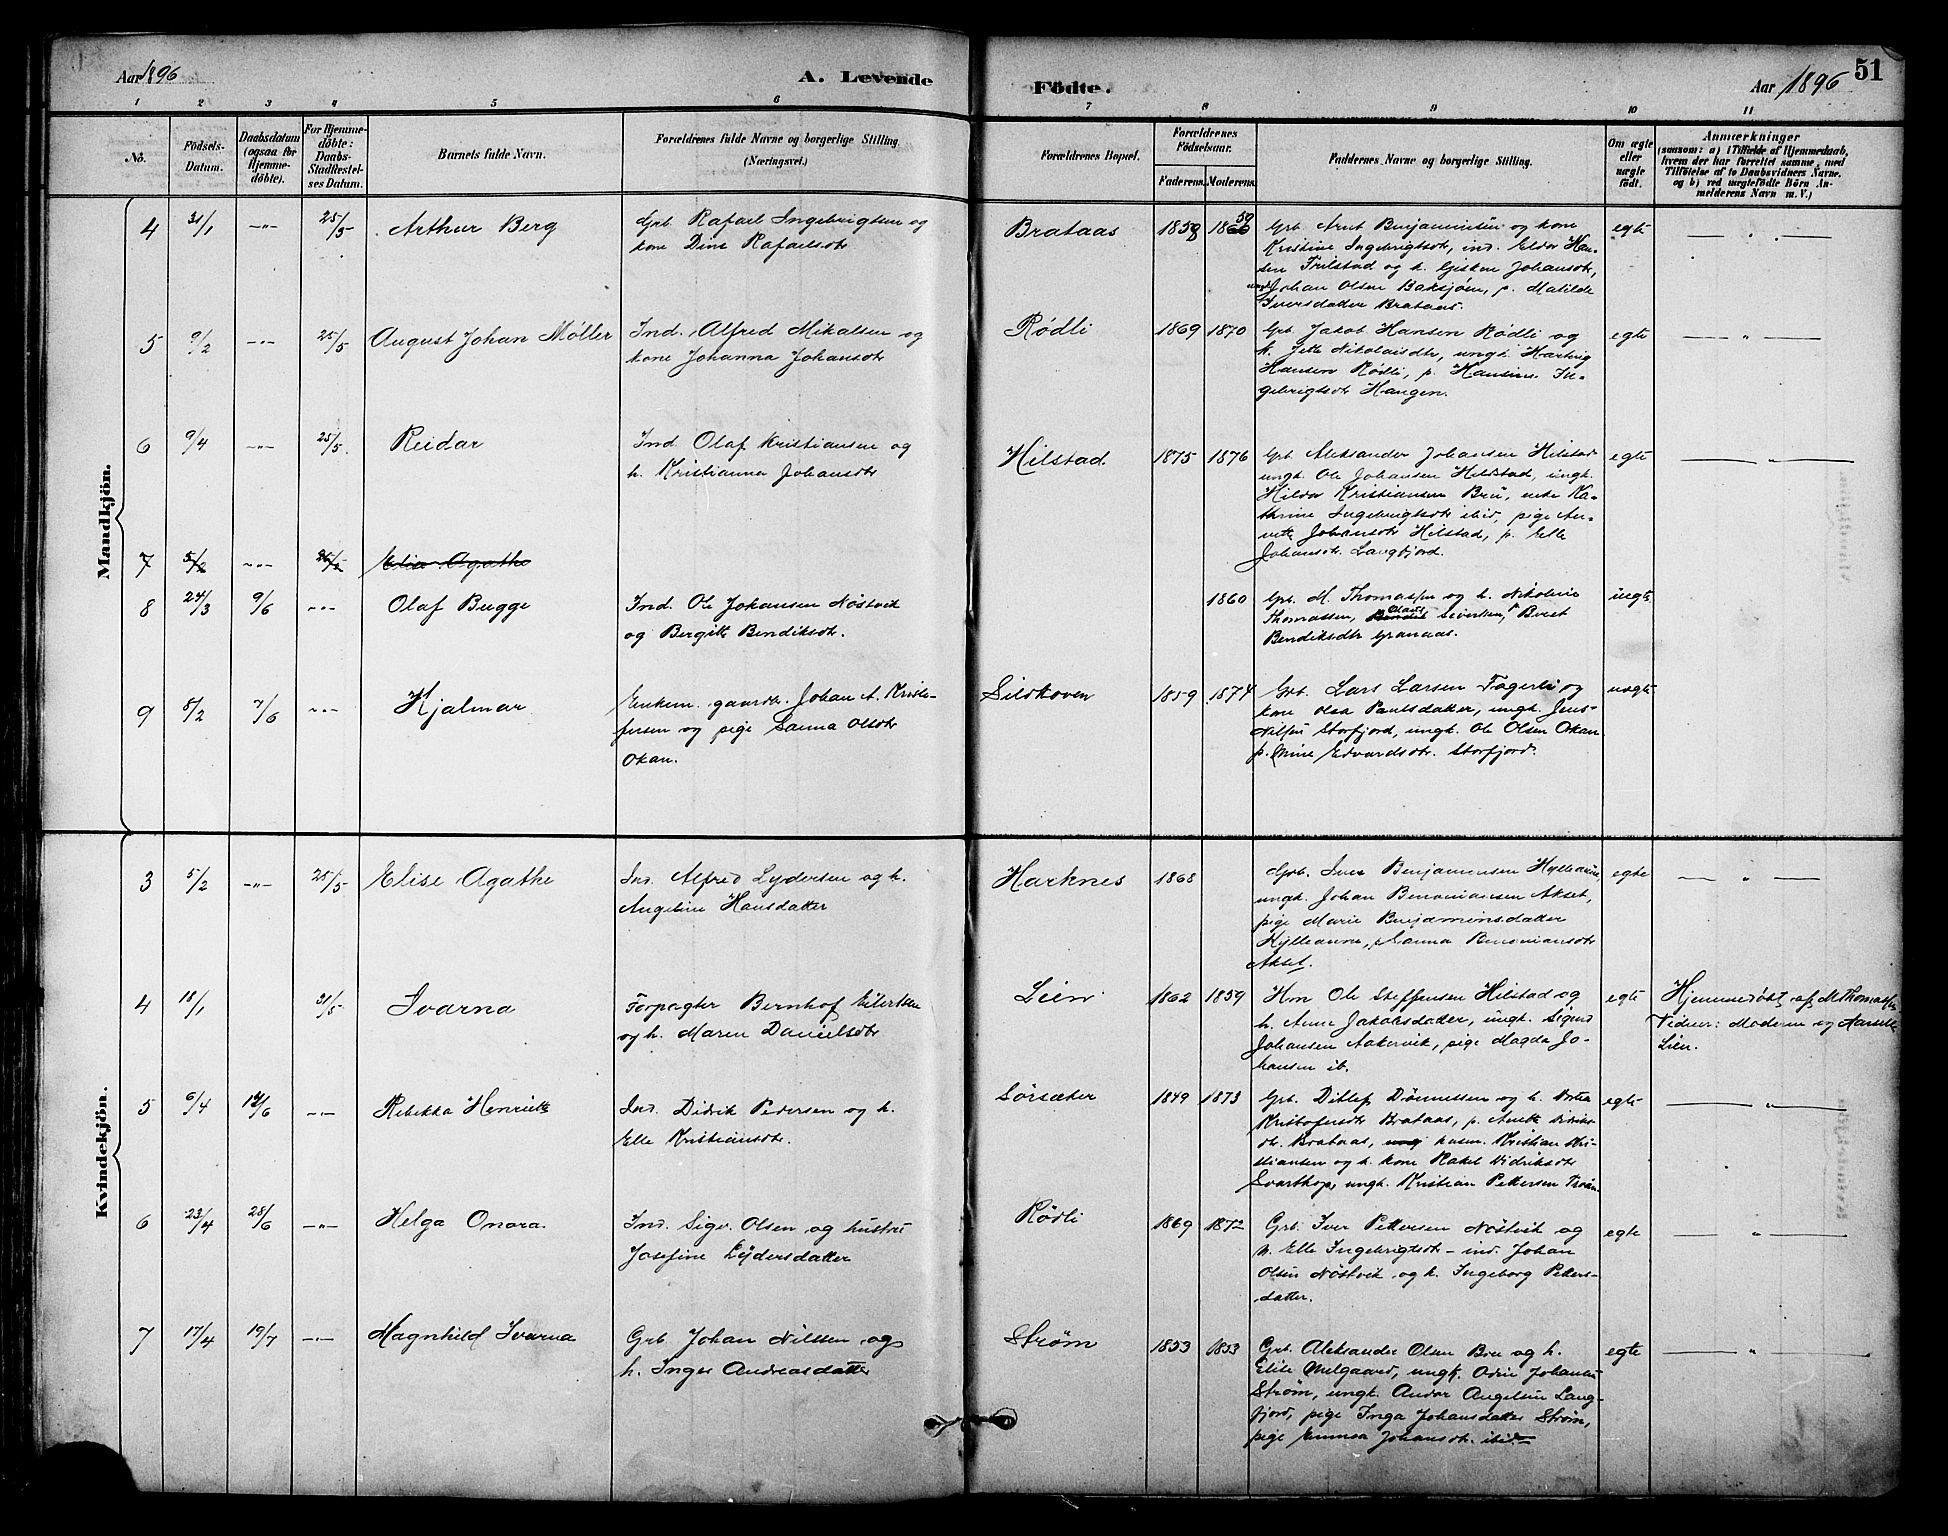 Aar 1896
A. Levende
Födte.
Aar 1896
51
1 2 3 4 5 6 7 8 9 10 11
No.
Födsels-Datum.
Daabsdatum (ogsaa for Hjemme-döbte).
For Hjemme-döbte: Daabs-Stadfæstel-ses Datum.
Barnets fulde Navn.
Forældrenes fulde Navne og borgerlige Stilling. (Næringsvei.)
Forældrenes Bopæl.
Forældrenes Födselsaar.
Faderens. Moderens.
Faddernes Navne og borgerlige Stilling.
Om ægte eller uægte födt.
Anmærkninger
(saasom: a) i Tilfælde af Hjemmedaab,
hvem der har forrettet samme, med
Tilföielse af to Daabsvidners Navne,
og b) ved uægtefödte Börn An-
melderens Navn m. V.)
Mandkjön.
4 31/1 -"- 25/5 Arthur Berg
Grb. Rafael Ingebrigtsen og
kone Dina Rafaelsdtr
Brataas 1858 1859
Grb. Arnt Benjaminsen og kone
Kristine Ingebrigtsdtr, ind. Eldor Han-
sen Frilstad og h. Gisken Johansdtr,
ungk. Johan Olsen Baksjøen, p. Matilde
Iversdatter Brataas.
egte — " —
5 9/2 -"- 25/5 August Johan Møller
Ind. Alfred Mikalsen og
kone Johanna Johansdtr
Rødli 1869 1870
Grb. Jakob Hansen Rødli og
k. Jette Nikolaisdtr, ungk. Hartvig
Hansen Rødli, p. Hansine In-
gebrigtsdtr Haugen.
egte — " —
6 9/4 -"- 25/5 Reidar
Ind. Olaf Kristiansen og
h. Kristianna Johansdtr
Hilstad 1875 1876
Grb. Aleksander Johansen Hilstad
ungk. Ole Johansen Hildstad, ungk.
Hildor Kristiansen Bru, enke Ka-
thrine Ingebrigtsdtr ibid, pige An-
nette Johansdtr Hilstad, p. Elle
Johansdtr. Langfjord.
egte — " —
7 5/2 -"- 25/5 Elise Agathe
8 24/3 9/6 -"- Olaf Bugge
Ind. Ole Johansen Nøstvik
og Bergitte Bendiksdtr.
1860
Grb. M. Thomassen og h. Nikoline
Thomassen, Sivertsen, p Beret
Bendiksdtr Granaas.
uegte
9 8/2 7/6 -"- Hjalmar
Enkem. gaardbr. Johan A. Kristo-
fersen og pige Sanna Olsdtr
Okan.
Sildkoven 1859 1874
Grb. Lars Larsen Fagerli og
kone Olsa Paulsdatter, ungk. Jens
Nilsen Storfjord, ungk. Ole Olsen Okan
p. Mine Edvardsdtr. Storfjord.
uegte
Kvindekjön.
3 5/2 -"- 25/5 Elise Agathe
Ind. Alfred Lydersen og h.
Angeline Hansdatter
Harknes 1868
Grb. Iver Benjaminsen Hylleaune,
ungk. Johan Benoniansen Akset,
pige Marie Benjaminsdatter
Hylleaune, p. Sanna Benoniansdtr
Akset.
egte — " —
4 18/1 31/5 Ivarna
Forpagter Bernhof Eilertsen
og h. Maren Danielsdtr
Lien 1862 1859
Hm Ole Steffensen Hilstad og
h. Anne Jakobsdatter, ungk. Sigurd
Johansen Aakervik, pige Magda Jo-
hansen ib.
egte
Hjemmedöbt af M. Thomassen
Vidner: Moderen og
Lien.
5 6/4 14/6 -"- Rebekka Henriette
Ind. Didrik Pedersen og h.
Elle Kristiansdtr.
Sörsæter 1849 1873
Grb. Ditlef Dönnessen og h. Norea
Kristofersdtr Brataas, p. Anette Didriks-
dtr. Brataas, ung husm. Kristian Kri-
stiansen og h. kone Rakel Didriksdtr
Svarthop, ungk. Kristian Pettersen
egte — " —
6 23/4 28/6 -"- Helga Onora.
Ind. Sigv. Olsen og hustru
Josefine Lydersdatter
Rødli 1869 1872
Grb. Iver Pettersen Nöstvik og
h. Elle Ingebrigtsdtr – ind. Johan
Olsen Nöstvik og h. Ingeborg Petters-
datter.
egte — " —
7 17/4 19/7 -"- Magnhild Ivarna
Grb. Johan Nilssen og
h. Inger Andreasdatter
Strøm 1853 1853
Grb. Aleksander Olsen Bru og h.
Elise Melgaard, ungk. Odin Johansen
Strøm, ungk. Andor Angelsen Lang-
fjord, pige Inga Johansdatter Strøm,
pige Emma Johansdtr. ibid.
egte — " —